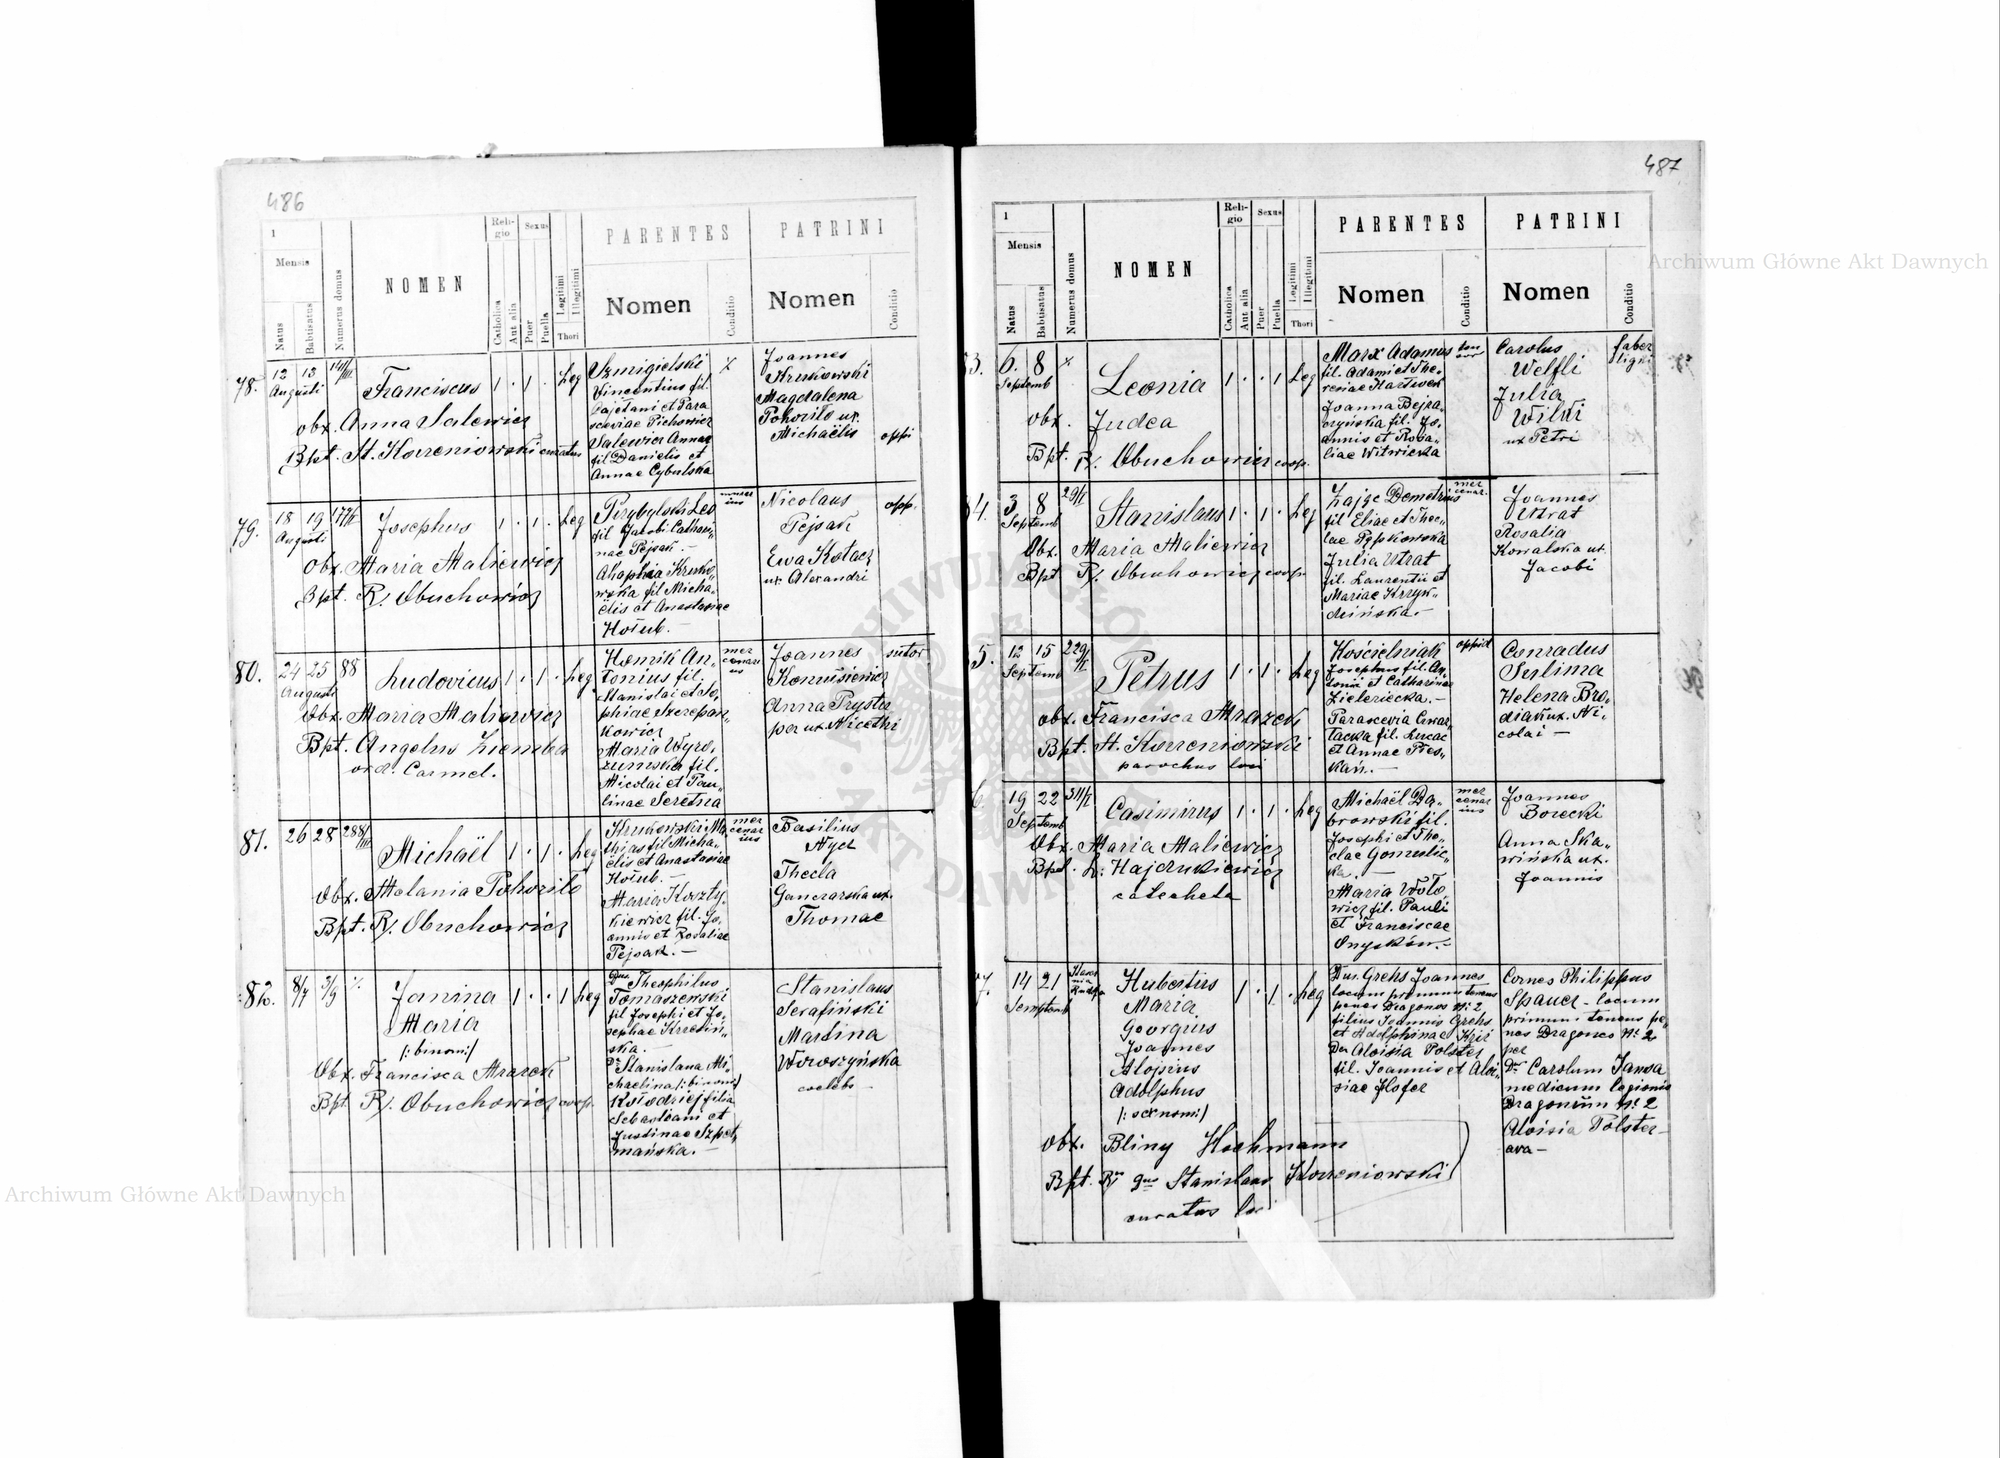 486
1
Mensis
Natus
Babtisatus
Numerus domus
NOMEN
Reli-
gio
Catholica
Aut alia
Sexus
Puer
Puella
Legitimi
Illegitimi
Thori
PARENTES
Nomen
Conditio
PATRINI
Nomen
Conditio
78. 12 13 Franciscus 1 . 1 . Leg
Augusti
obx. Anna Salewicz
Bpt. St. Korzeniowski curatus
Szmigielski
Vincentius fil.
Cajetani et Para
sceviae Pichowicz
Salewicz Annae
fil Danielis et
Annae Cybulska
Joannes
Krukowski
Magdalena
Pohoriło ux.
Michaëlis
oppi
79. 18 19 Josephus 1 . 1 . Leg
Augusti
Obx. Maria Maliewicz
Bpt. R. Obuchowicz
Przybylski Leo
fil Jacobi Cathari
nae Pejsak. —
Ahaphia Kruko
wska fil Micha
ëlis et Anastasiae
Hołub. —
Nicolaus
Pejsak
Ewa Kotacz
ux. Alexandri
opp.
80. 24 25 88 Ludovicus 1 . 1 . Leg
Augusti
Obx. Maria Maliewicz
Bpt. Angelus Ziemba
ord. Carmel.
Homik An-
tonius fil.
Stanislai et So-
phiae Szczepan-
kowicz
Maria Wyro-
zumska fil.
Nicolai et Pau-
linae Seretna
mer
cenari
us
Joannes
Konusiewicz
Anna Prystu
pa ux Nicethi
sutor
81. 26 28 288/III Michaël 1 . 1 . Leg
Obx. Melania Pohoriło
Bpt. R. Obuchowicz
Krukowski Ma
thias fil Micha-
ëlis et Anastasiae
Hołub. —
Maria Korzty-
kiewicz fil. Jo-
annis et Rosaliae
Pejsak. —
mer
cenar
ius
Basilius
Nycz
Thecla
Ganczarska ux.
Thomae
82. 8/7 3/9 Janina 1 . . 1 Leg
Maria
/: binom:/
Obx. Francisca Mrazek
Bpt R. Obuchowicz coop.
Theophilus
Tomaszewski
fil Josephi et Jo-
sephae Krzesiń-
ska. —
Stanislava Mi-
chaelina /: binom:/
Kołodziej filia
Sebastiani et
Justinae Szpet-
mańska. —
Stanislaus
Serafiński
Martina
Woroszyńska
coelebs —
487
1
Mensis
Natus
Babtisatus
Numerus domus
NOMEN
Reli-
gio
Catholica
Aut alia
Sexus
Puer
Puella
Legitimi
Illegitimi
Thori
PARENTES
Nomen
Conditio
PATRINI
Nomen
Conditio
3. 6. 8 Leonia 1 . . 1 Leg
Septemb
obx. Judea
Bpt. R. Obuchowicz coop.
Marx Adamus
fil. Adami et The-
resiae Hartwek
Joanna Bejra-
czyńska fil. Jo-
annis et Rosa-
liae Witwicka
Carolus
Welfli
Julia
Wilki
ux Petri
faber
lign.
4. 3 8 29/I Stanislaus 1 . 1 . Leg
Septemb
Obx. Maria Maliewicz
Bpt. R. Obuchowicz coop.
Zając Demetrius
fil Eliae et Thec-
lae Pępkowska
Julia Utrat
fil. Laurentii et
Mariae Krzyk-
dzińska. —
mer
cenar.
Joannes
Utrat
Rosalia
Kowalska ux.
Jacobi
5. 12 15 229/I Petrus 1 . 1 . Leg
Septemb
obx. Francisca Mrazek
Bpt. St. Korzeniowski
parochus loci
Kościelniak
Josephus fil. An-
tonii et Catharinae
Zieleniecka. —
Parascevia Cwar-
tacka fil. Lucae
et Annae Pies-
kań. —
oppid
Conradus
Sulima
Helena Bro-
diak ux. Ni-
colai —
6. 19 22 311/I Casimirus 1 . 1 . Leg
Septemb
Obx. Maria Maliewicz
Bpt. L. Hajdukiewicz
catecheta
Michaël Dą-
browski fil.
Josephi et The-
clae Gomulic-
ka. —
Maria Woło-
wicz fil. Pauli
et Franciscae
Onyśków. —
mer
cenar
ius
Joannes
Borecki
Anna Ska-
wińska ux.
Joannis
7. 14 21 Hubertus 1 . 1 . Leg
Septemb
Maria
Georgius
Joannes
Aloysius
Adolphus
/: sexnom:/
Obx. Bliny Hochmann
Bpt. Stanislaus Korzeniowski
curatus loci
Dns. Grehs Joannes
locum primum tenens
penes Dragones No 2
filius Joannis Grehs
et Adolphinae Krzi
Dna Aloisia Polster
fil. Joannis et Aloi-
siae Hofer
Comes Philippus
Spauer — locum
primum tenens pe-
nes Dragones No 2
per
Dr Carolum Jansa
medicum legionis
Dragonum No 2
Aloisia Polster —
ava —
Archiwum Główne Akt Dawnych
Archiwum Główne Akt Dawnych
ARCHIWUM GŁÓWNE AKT DAWNYCH